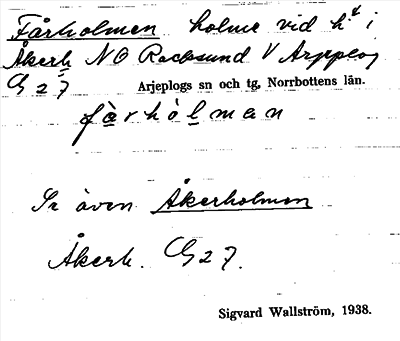 Fårholmen holme vid h:t i
Åkerh NO Racksund V Arjeplog
G 27 Arjeplogs sn och tg, Norrbottens län.
fàrhólman
Se även Åkerholmen
Åkerh. G 27.
Sigvard Wallström, 1938.